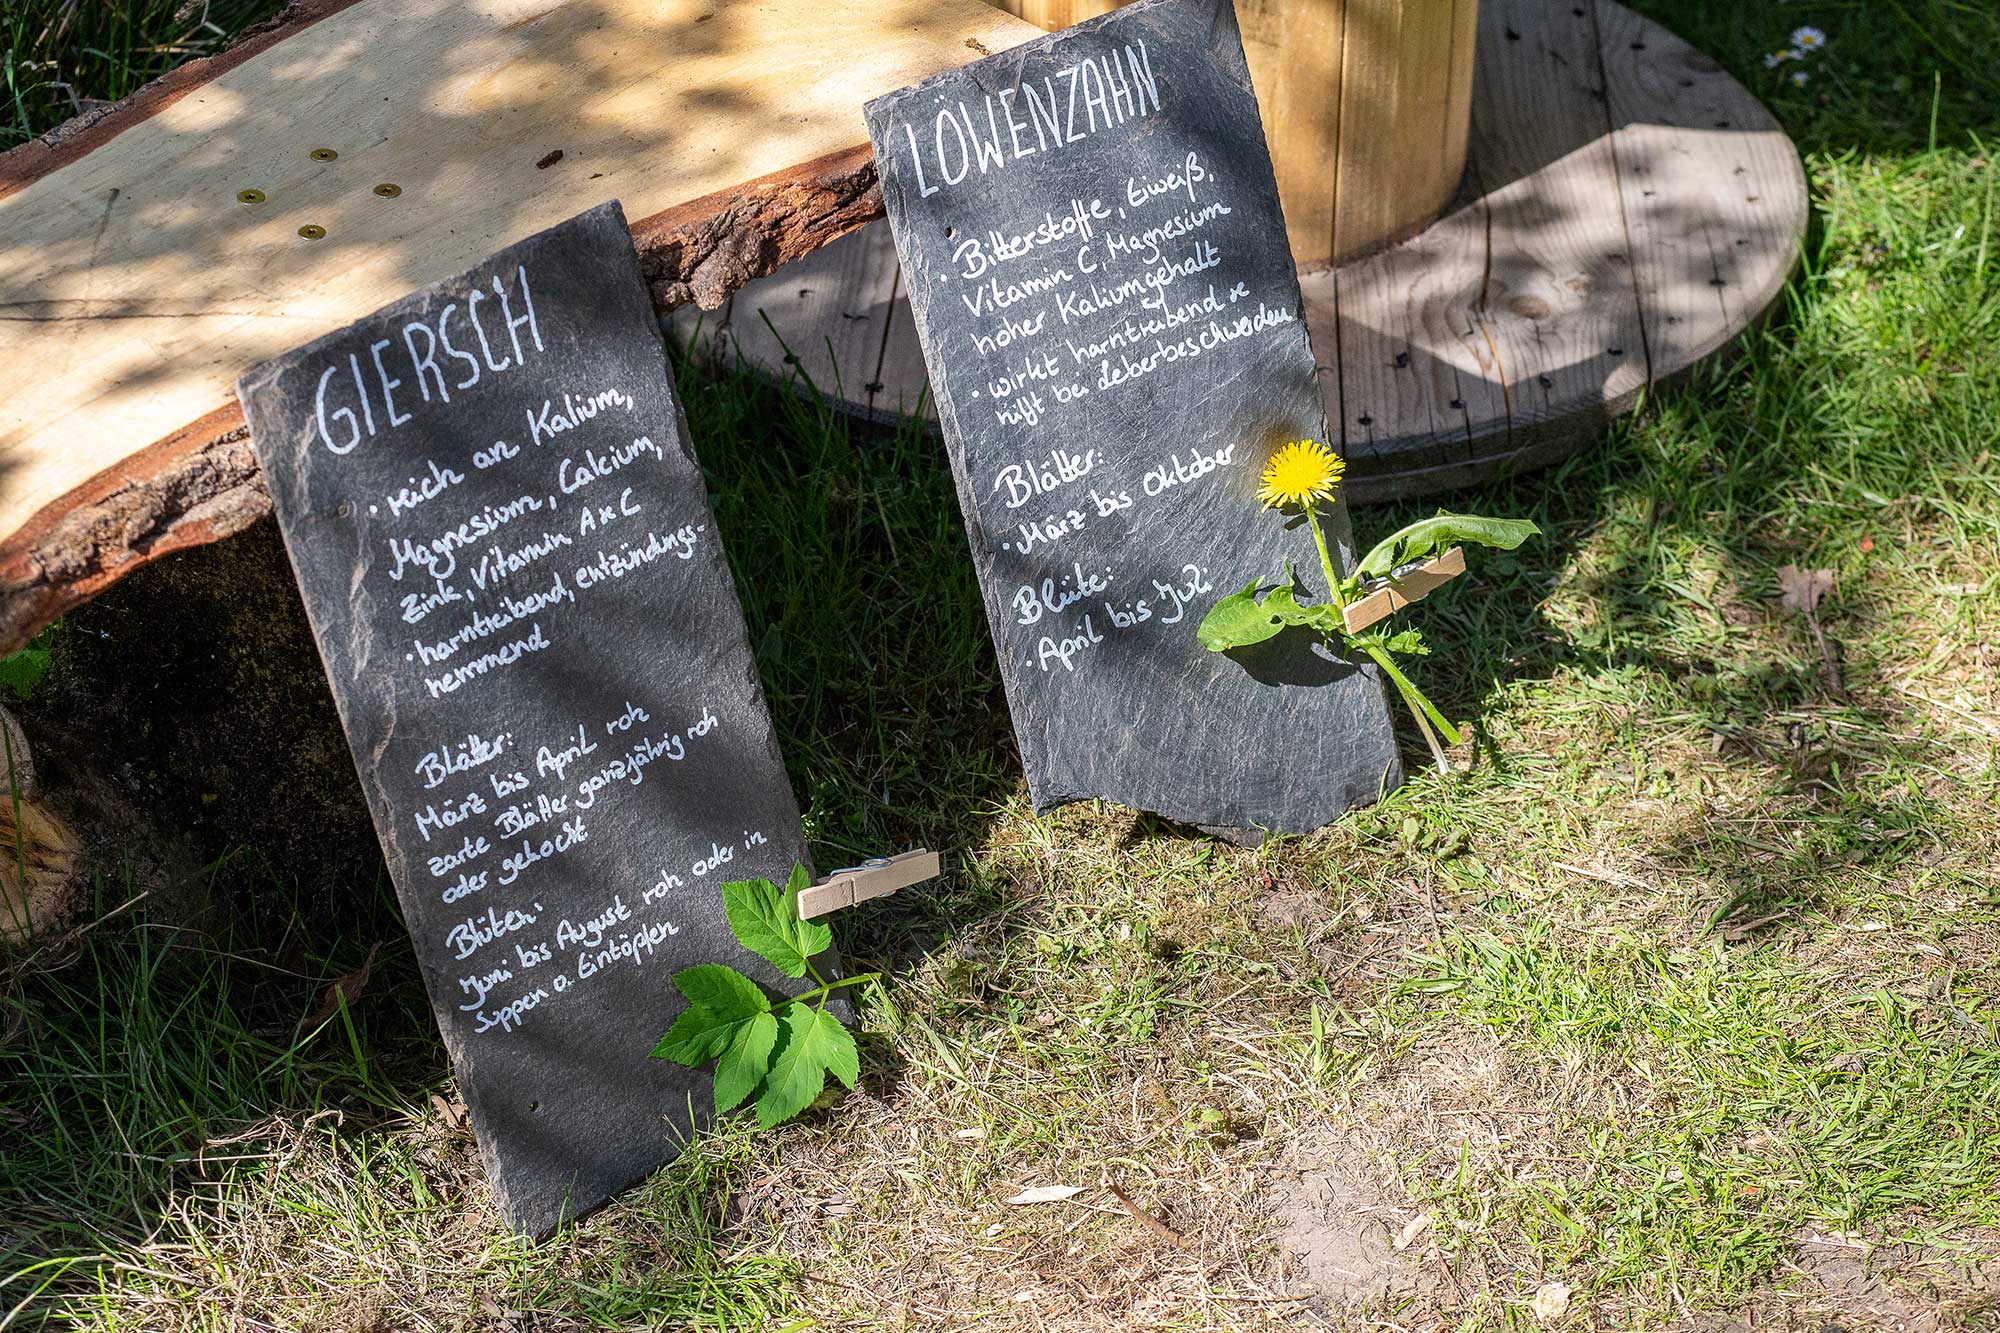 GIERSCH
• reich an Kalium,
Magnesium, Calcium,
Zink, Vitamin A & C
• harntreibend, entzündungs-
hemmend
Blätter:
März bis April roh
zarte Blätter ganzjährig roh
oder gekocht
Blüten:
Juni bis August roh oder in
Suppen o. Eintöpfen
LÖWENZAHN
• Bitterstoffe, Eiweiß,
Vitamin C, Magnesium
hoher Kaliumgehalt
• wirkt harntreibend &
hilft bei Leberbeschwerden
Blätter:
• März bis Oktober
Blüte:
• April bis Juli